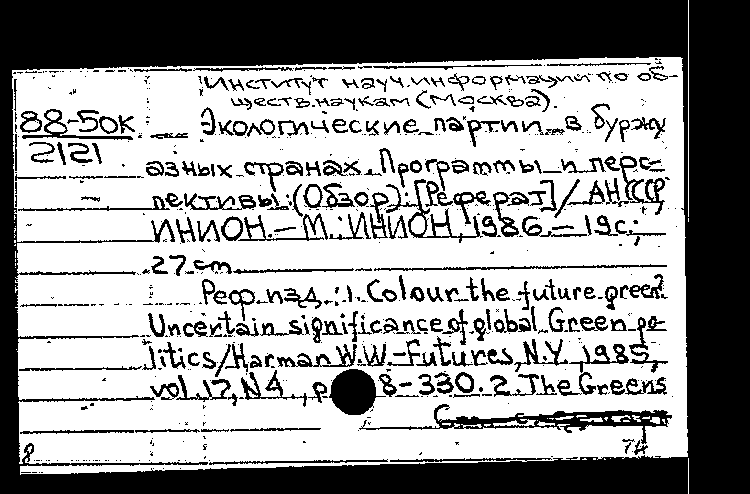 Институт науч.информации по об-
ществ.наукам (Москва).
88-5ок
2121
Экологические партии в буржу
азных странах. Программы и перс-
пективы: (Обзор): [Реферат] / АН СССР,
ИНИОН. – М.: ИНИОН, 1986. – 19с.;
27 cm.
Реф. изд.: 1. Colour the future green?
Uncertain significance of global Green po-
litics/Harman W.W.-Futures, N.Y., 1985,
vol.17, N4, p 8-330. 2. The Greens
8